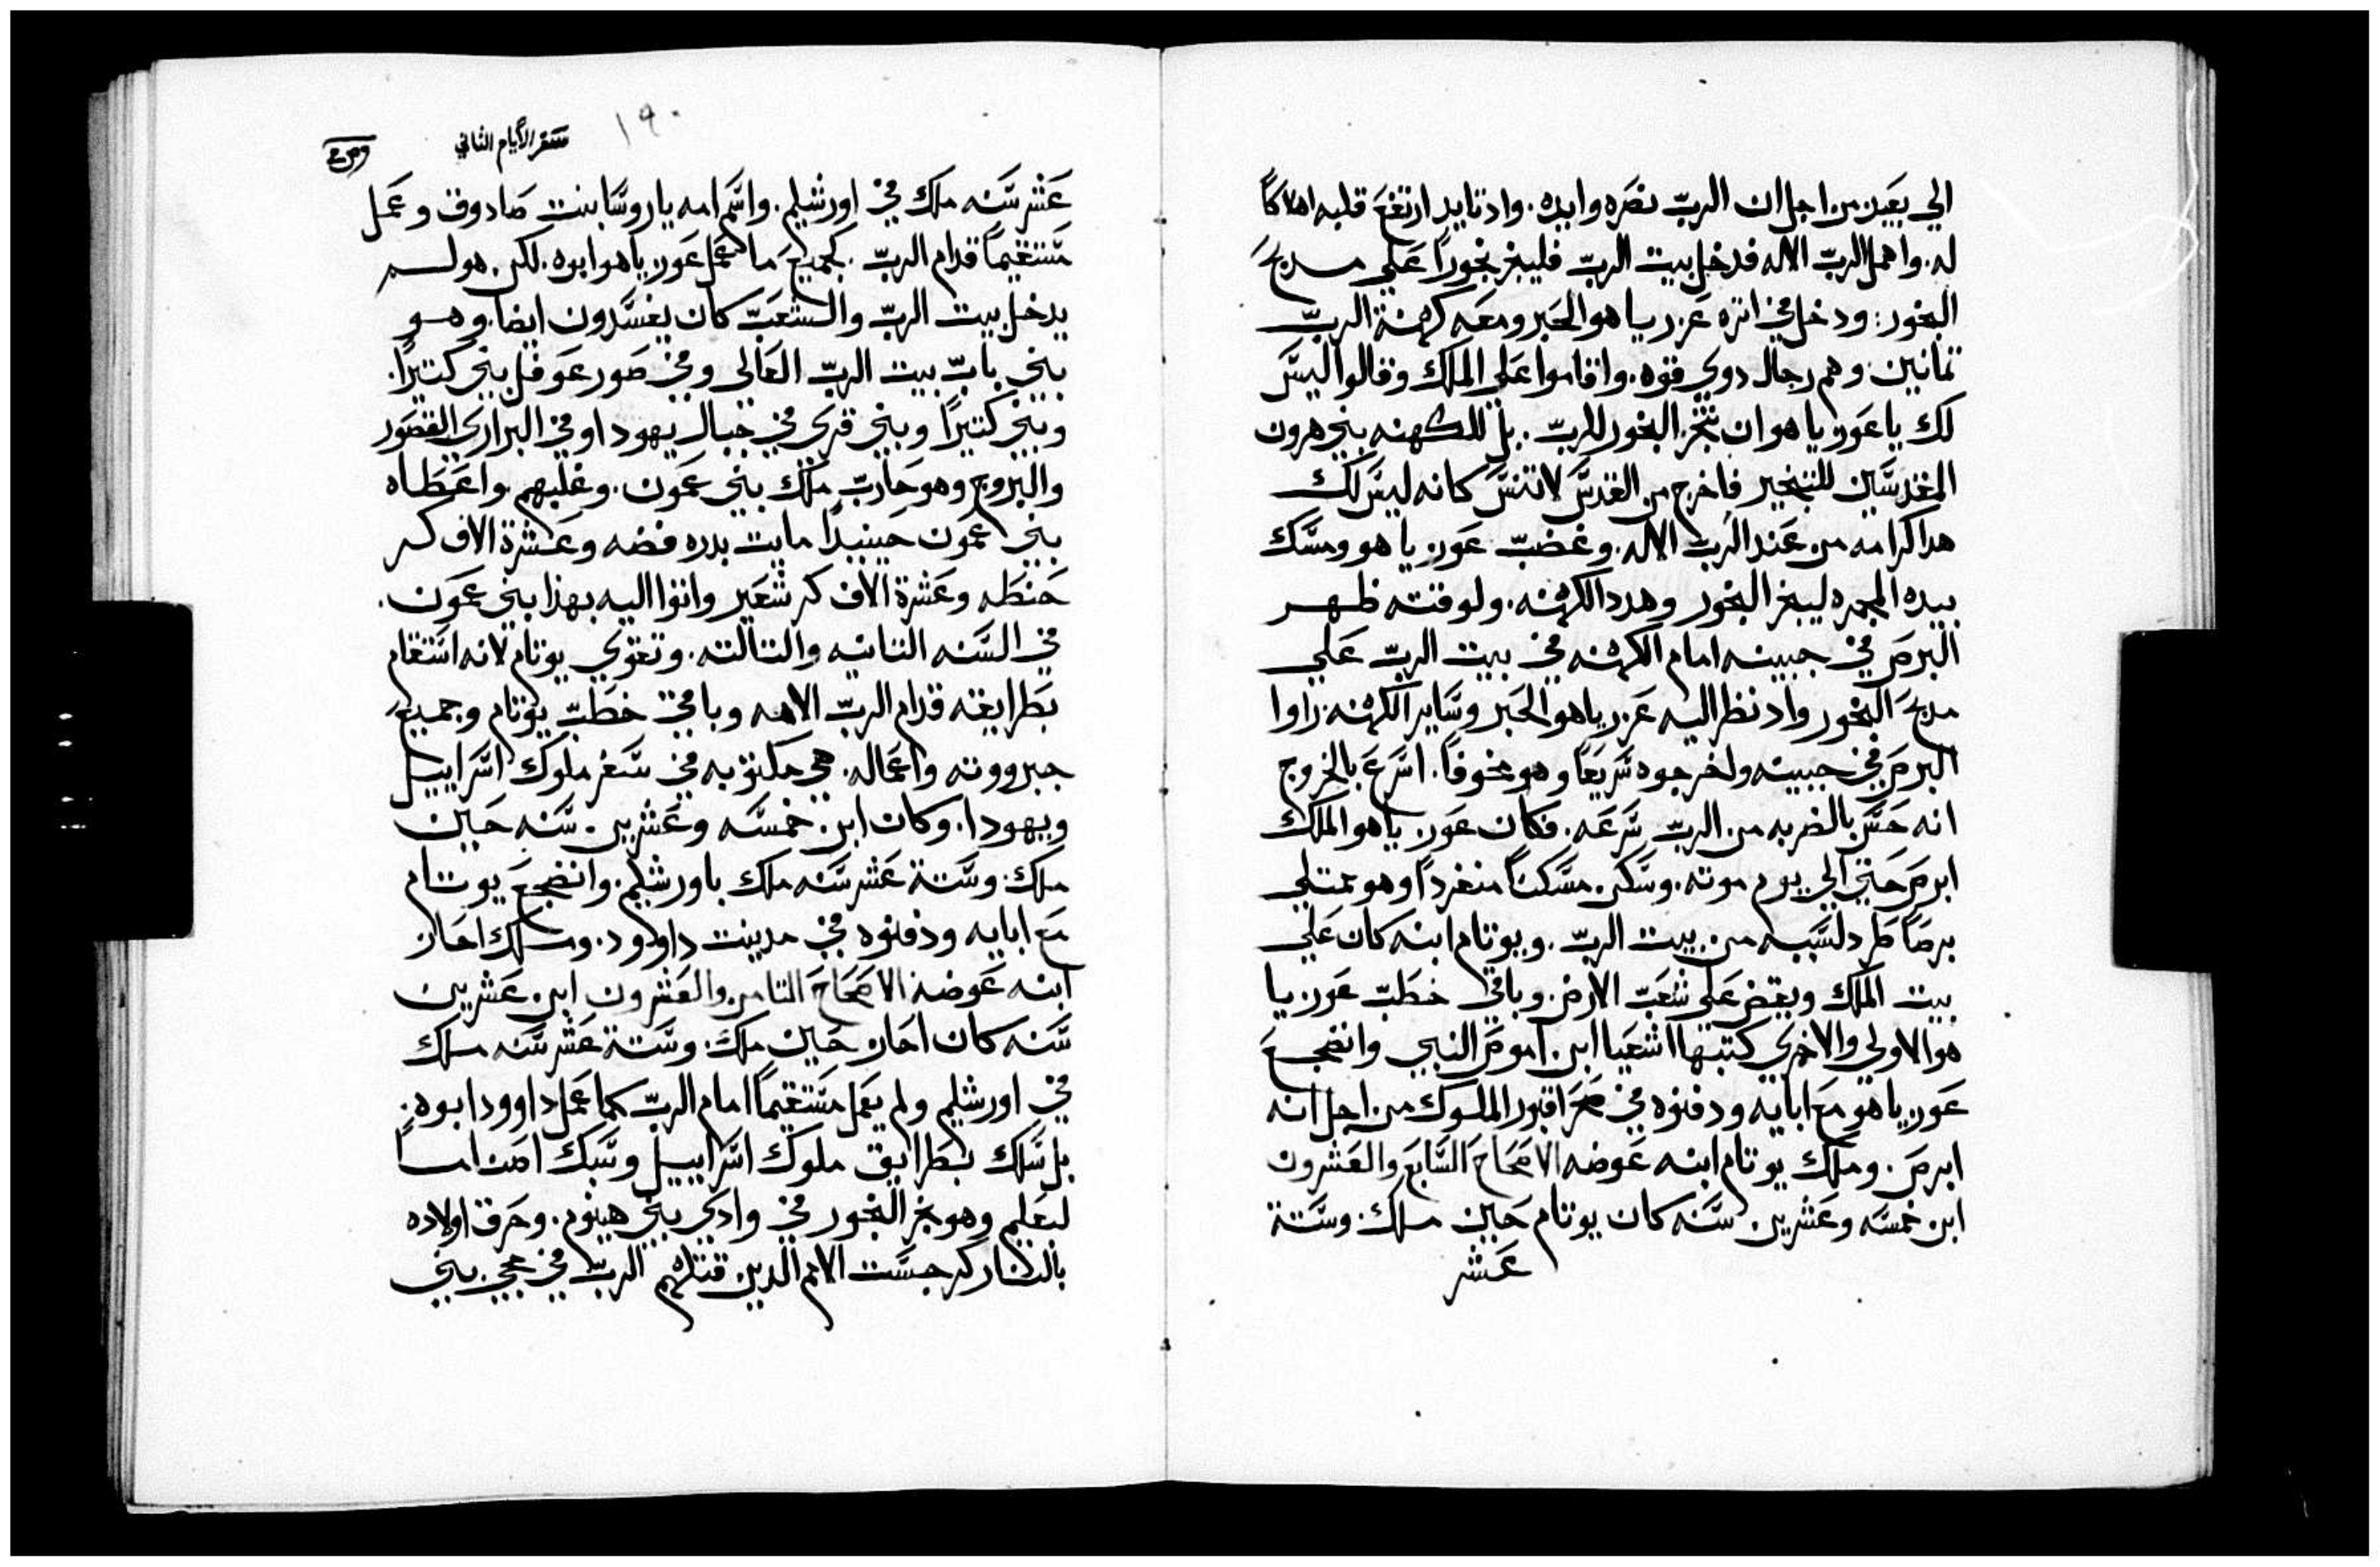 الي بعيد من اجل ان الربّ نصره وايده. واد تايد ارتفع قلبه اهلاكاً
له. واهمل الربّ الاله فدخل بيت الربّ فليبخر بخوراً علي مدبح
البخور: ودخل في اتره عزرياهو الحبر ومعه كهنة الربّ
تمانين وهم رجال دوي قوه. واقاموا علي الملك وقالوا ليس
لك يا عوزياهو ان تبخر البخور للربّ. بل للكهنه بني هرون
المقدسين للتبخير فاخرج من القدس لا تنس كانه ليس لك
هدا كرامه من عند الرب الاله. وغضبّ عوزياهو ومسك
بيده المجمره ليبخر البخور وهدد الكهنه. ولوقته ظهر
البرص في جبينه امام الكهنه في بيت الربّ علي
مدبح البخور واد نظر اليه عزرياهو الحبر وساير الكهنه. راوا
البرص في جبينه ولخرجوه سريعاً وهو مخوفاً. اسرع بالخروج
انه حس بالضربه من الربّ سرعه. فكان عوزياهو الملك
ابرص حتي الي يوم موته. وسكن مسكناً منفرداً وهو ممتلي
برصاً طرد لسببه من بيت الربّ. ويوتام ابنه كان علي
بيت الملك ويقض علي شعبّ الارض. وباقي خطبّ عوزيا
هو الاولي والاخري كتبها اشعيا ابن اموص النبي وانضجع
عوزياهو مع ابايه ودفنوه في صحرا قبور الملوك من اجل انه
ابرص. وملك يوتام ابنه عوضه الاصحاح السابع والعشرون
ابن خمسه وعشرين سنه كان يوتام حين ملك. وستة
عشر
١٩٠
سفر الايام الثاني
عشر سنه ملك في اورشليم. واسم امه ياروسا بنت صادوق وعمل
مستقيماً قدام الربّ. بجميع ما عمل عوزياهو ابوه. لكن هو لم
يدخل بيت الربّ والشعبّ كان يفسدون ايضا. وهو
بني بابّ بيت الربّ العالي وفي صور عوفل بني كتيراً.
وبني كتيراً وبني قري في جبال يهودا وفي البراري القصور
والبروج وهو حاربّ ملك بني عمون. وغلبهم واعطاه
بني عمون حينيداً مايت بدره فضه وعشرة الاف كر
حنطه وعشرة الاف كر شعير واتوا اليه بهذا بني عمون.
في السنه التانيه والتالته. وتقوي يوتام لانه استقام
بطرايقه قدام الربّ الاهه وباقي خطبّ يوتام وجميع
جبرووته واعماله. هي مكتوبه في سفر ملوك اسراييل
ويهودا. وكان ابن خمسه وعشرين سنه حين
ملك. وستة عشر سنه ملك باورشليم. وانضجع يوتام
مع ابايه ودفنوه في مدينت داوود. وملك احاز
ابنه عوضه الاصحاح التامن والعشرون ابن عشرين
سنه كان احاز حين ملك. وستة عشر سنه ملك
في اورشليم ولم يعمل مستقيماً امام الربّ كما عمل داوود ابوه.
بل سلك بطرايق ملوك اسراييل وسبك اصناماً
لبعليم وهو بخر البخور في وادي بني هينوم. وحرق اولاده
بالنار كرجست الامم الدين قتلهم الربّ في مجي بني